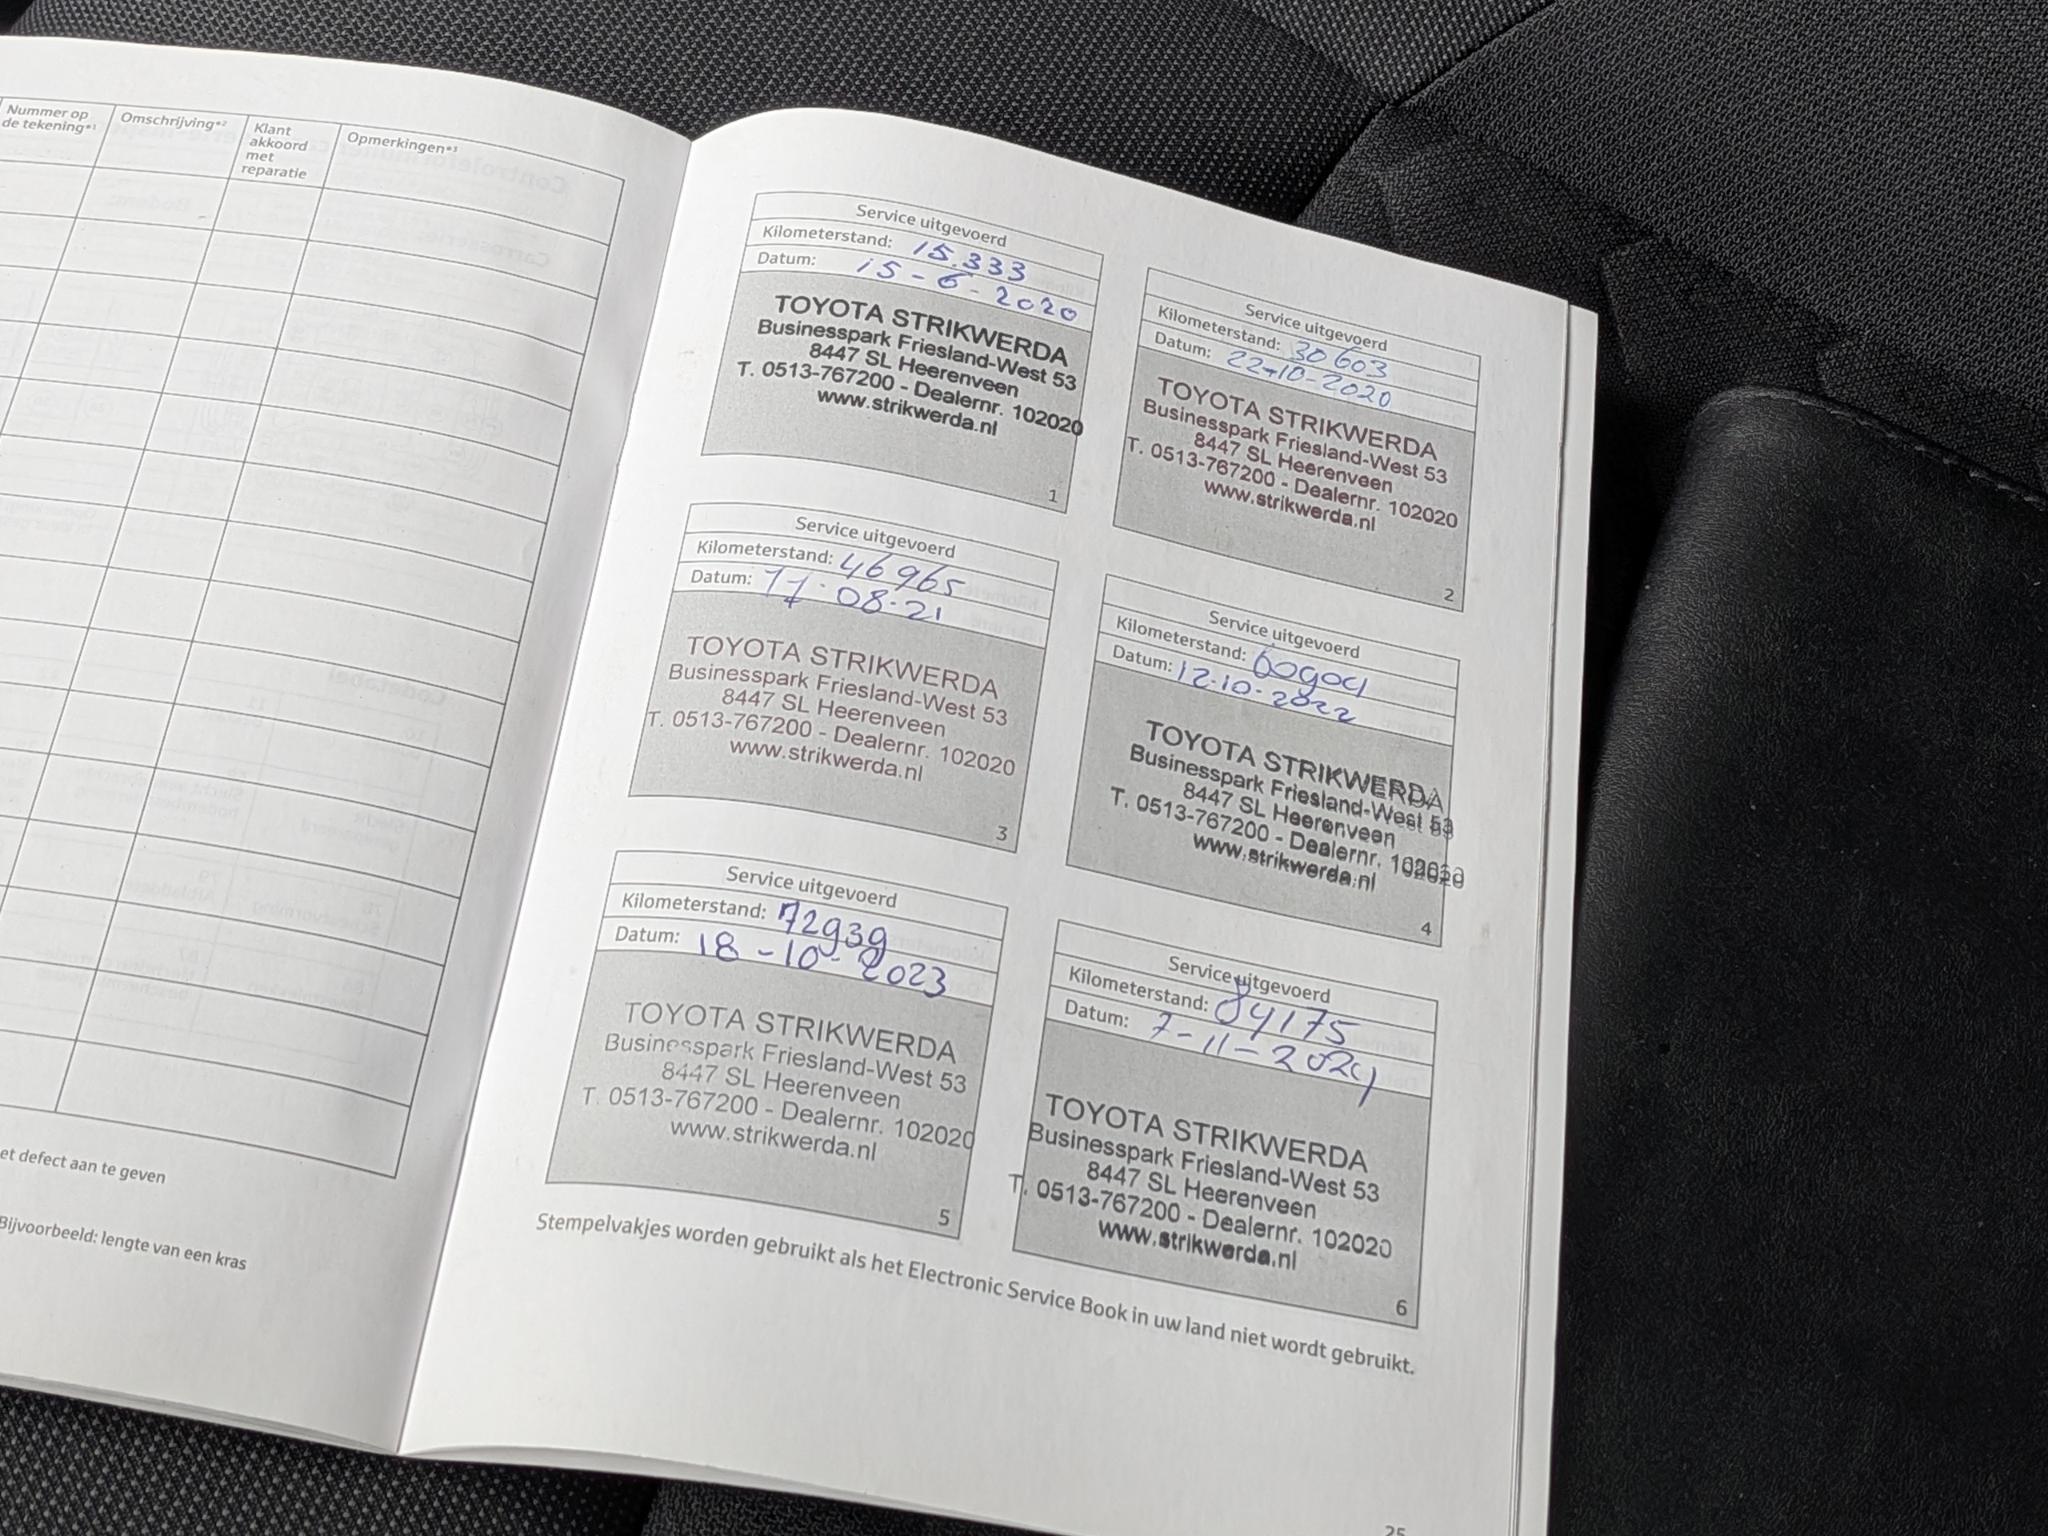 Nummer op
de tekening*1
Omschrijving*2
Klant
akkoord
met
reparatie
Opmerkingen*3
et defect aan te geven
Bijvoorbeeld: lengte van een kras
Service uitgevoerd
Kilometerstand: 15.333
Datum: 15-6-2020
TOYOTA STRIKWERDA
Businesspark Friesland-West 53
8447 SL Heerenveen
T. 0513-767200 - Dealernr. 102020
www.strikwerda.nl
1
Service uitgevoerd
Kilometerstand: 30603
Datum: 22-10-2020
TOYOTA STRIKWERDA
Businesspark Friesland-West 53
8447 SL Heerenveen
T. 0513-767200 - Dealernr. 102020
www.strikwerda.nl
2
Service uitgevoerd
Kilometerstand: 46965
Datum: 17.08.21
TOYOTA STRIKWERDA
Businesspark Friesland-West 53
8447 SL Heerenveen
T. 0513-767200 - Dealernr. 102020
www.strikwerda.nl
3
Service uitgevoerd
Kilometerstand: 60904
Datum: 12.10.2022
TOYOTA STRIKWERDA
Businesspark Friesland-West 53
8447 SL Heerenveen
T. 0513-767200 - Dealernr. 102020
www.strikwerda.nl
4
Service uitgevoerd
Kilometerstand: 72939
Datum: 18-10-2023
TOYOTA STRIKWERDA
Businesspark Friesland-West 53
8447 SL Heerenveen
T. 0513-767200 - Dealernr. 102020
www.strikwerda.nl
5
Service uitgevoerd
Kilometerstand: 84175
Datum: 7-11-2024
TOYOTA STRIKWERDA
Businesspark Friesland-West 53
8447 SL Heerenveen
T. 0513-767200 - Dealernr. 102020
www.strikwerda.nl
6
Stempelvakjes worden gebruikt als het Electronic Service Book in uw land niet wordt gebruikt.
25